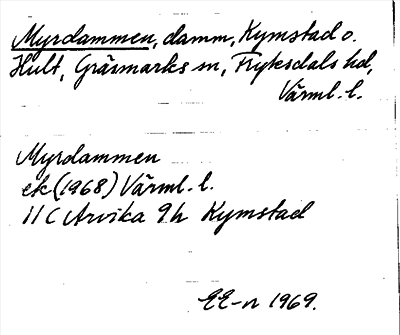 Myrdammen, damm, Kymstad o.
Hult, Gräsmarks sn, Fryksdals hd,
Värml. l.
Myrdammen
ek (1968) Värml. l.
11 C Arvika 9 h Kymstad
EE-n 1969.